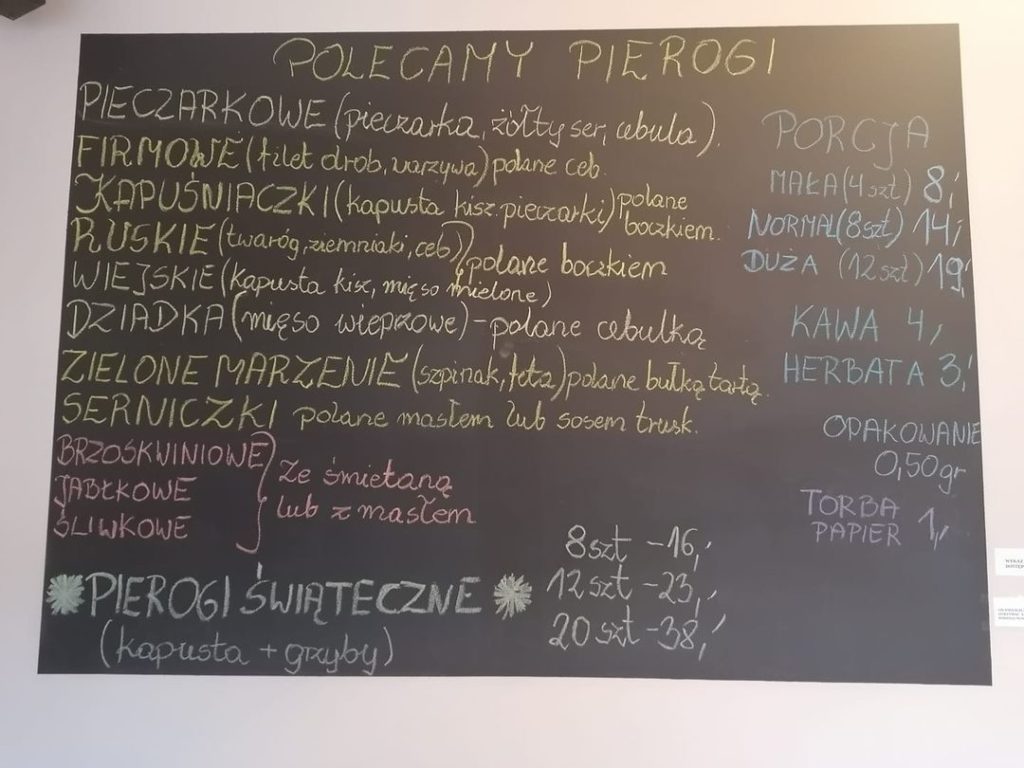 POLECAMY PIEROGI
PIECZARKOWE (pieczarka, żółty ser, cebula).
FIRMOWE (filet drob, warzywa) polane ceb.
KAPUŚNIACZKI (kapusta kisz. pieczarki) polane boczkiem.
RUSKIE (twaróg, ziemniaki, ceb) polane boczkiem
WIEJSKIE (kapusta kisz, mięso mielone)
DZIADKA (mięso wieprzowe) - polane cebulką
ZIELONE MARZENIE (szpinak, feta) polane bułką tartą.
SERNICZKI polane masłem lub sosem trusk.
BRZOSKWINIOWE
JABŁKOWE
ŚLIWKOWE
Ze śmietaną
lub z masłem
PIEROGI ŚWIĄTECZNE
(kapusta + grzyby)
8 szt - 16,-
12 szt - 23,-
20 szt - 38,-
PORCJA
MAŁA (4 szt) 8,-
NORMAL (8 szt) 14,-
DUŻA (12 szt) 19,-
KAWA 4,-
HERBATA 3,-
OPAKOWANIE
0,50 gr
TORBA
PAPIER 1,-